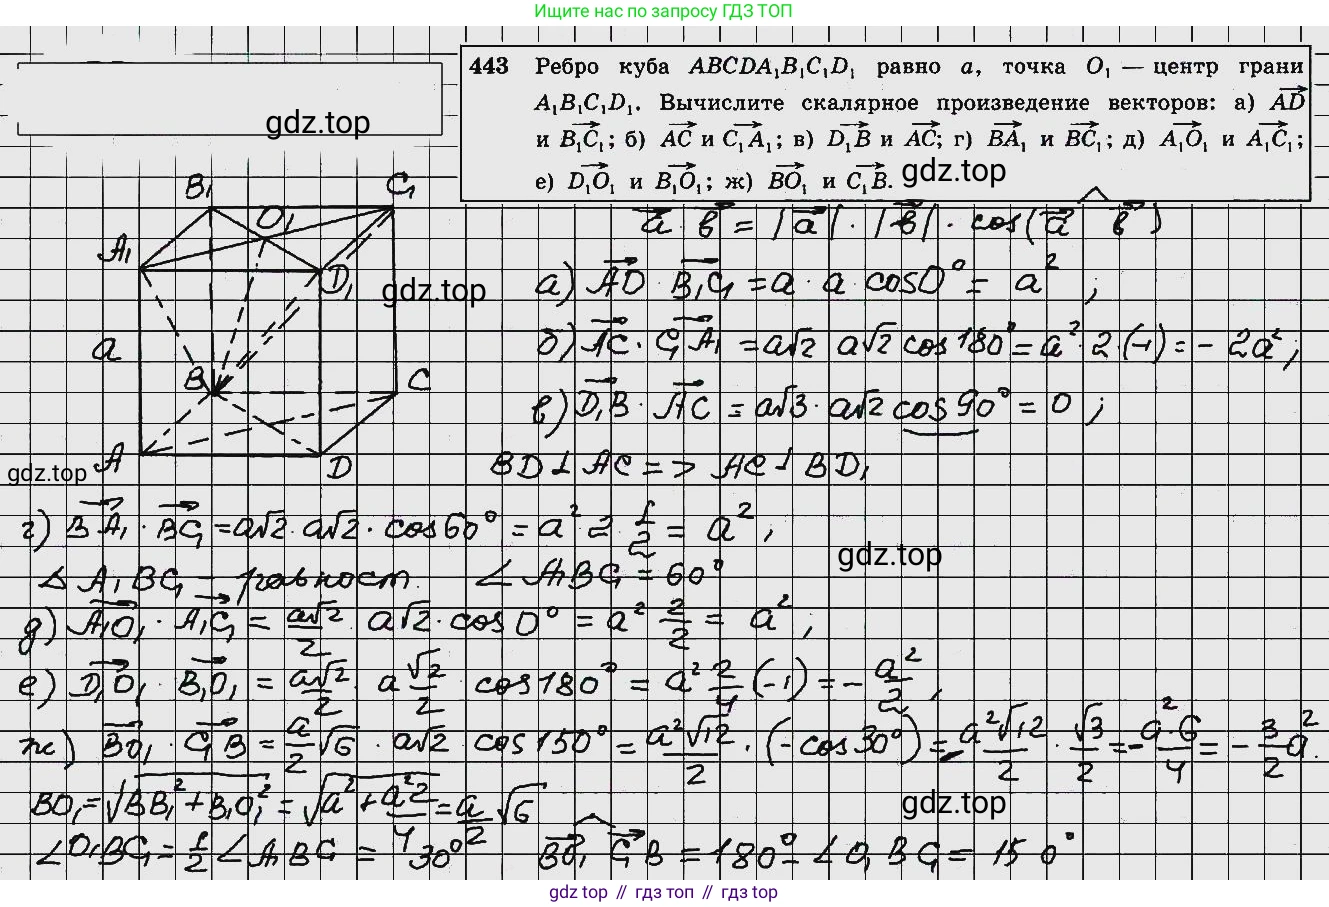 Ищите нас по запросу ГДЗ ТОП
443 Ребро куба ABCDA₁B₁C₁D₁ равно a, точка O₁ — центр грани
A₁B₁C₁D₁. Вычислите скалярное произведение векторов: а) AD
и B₁C₁; б) AC и C₁A₁; в) D₁B и AC; г) BA₁ и BC₁; д) A₁O₁ и A₁C₁;
е) D₁O₁ и B₁O₁; ж) BO₁ и C₁B.
gdz.top
gdz.top
B₁ C₁
O₁
A₁ D₁
gdz.top
a
B C
A D
gdz.top
a · b = |a| · |b| · cos(a b)
а) AD · B₁C₁ = a · a cos0° = a²;
б) AC · C₁A₁ = a√2 a√2 cos180° = a² · 2 · (-1) = - 2a²;
в) D₁B · AC = a√3 · a√2 cos90° = 0;
BD ⊥ AC => AC ⊥ BD₁
г) BA₁ · BC₁ = a√2 · a√2 · cos60° = a² 2 · 1/2 = a²;
gdz.top
Δ A₁BC₁ - равност. ∠A₁BC₁ = 60°
д) A₁O₁ · A₁C₁ = a√2/2 · a√2 · cos0° = a² 2/2 = a²;
е) D₁O₁ · B₁O₁ = a√2/2 · a √2/2 · cos180° = a² 2/4 (-1) = - a²/2;
ж) BO₁ · C₁B = a/2 √6 · a√2 · cos150° = a²√12/2 · (-cos30°) = - a²√12/2 · √3/2 = - a²·6/4 = - 3/2 a².
BO₁ = √(BB₁² + B₁O₁²) = √(a² + a²2/4) = a/2 √6
gdz.top
∠O₁BC₁ = 1/2 ∠A₁BC₁ = 30° BO₁ C₁B = 180° - ∠O₁BC₁ = 150°
gdz top // гдз топ // гдз top